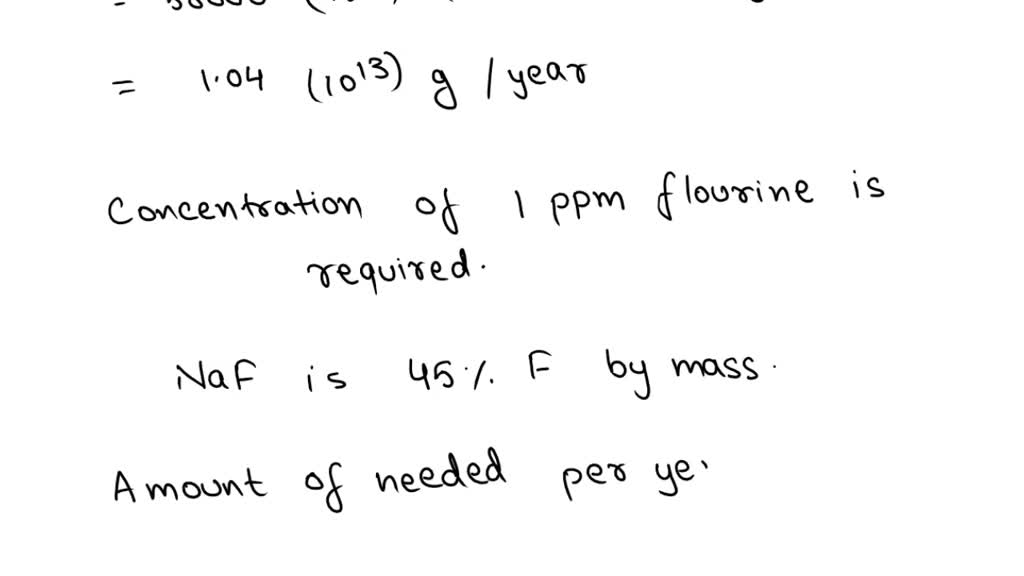 = 1.04 (10^13) g / year
Concentration of 1 ppm flourine is
required.
NaF is 45% F by mass.
Amount of needed per ye